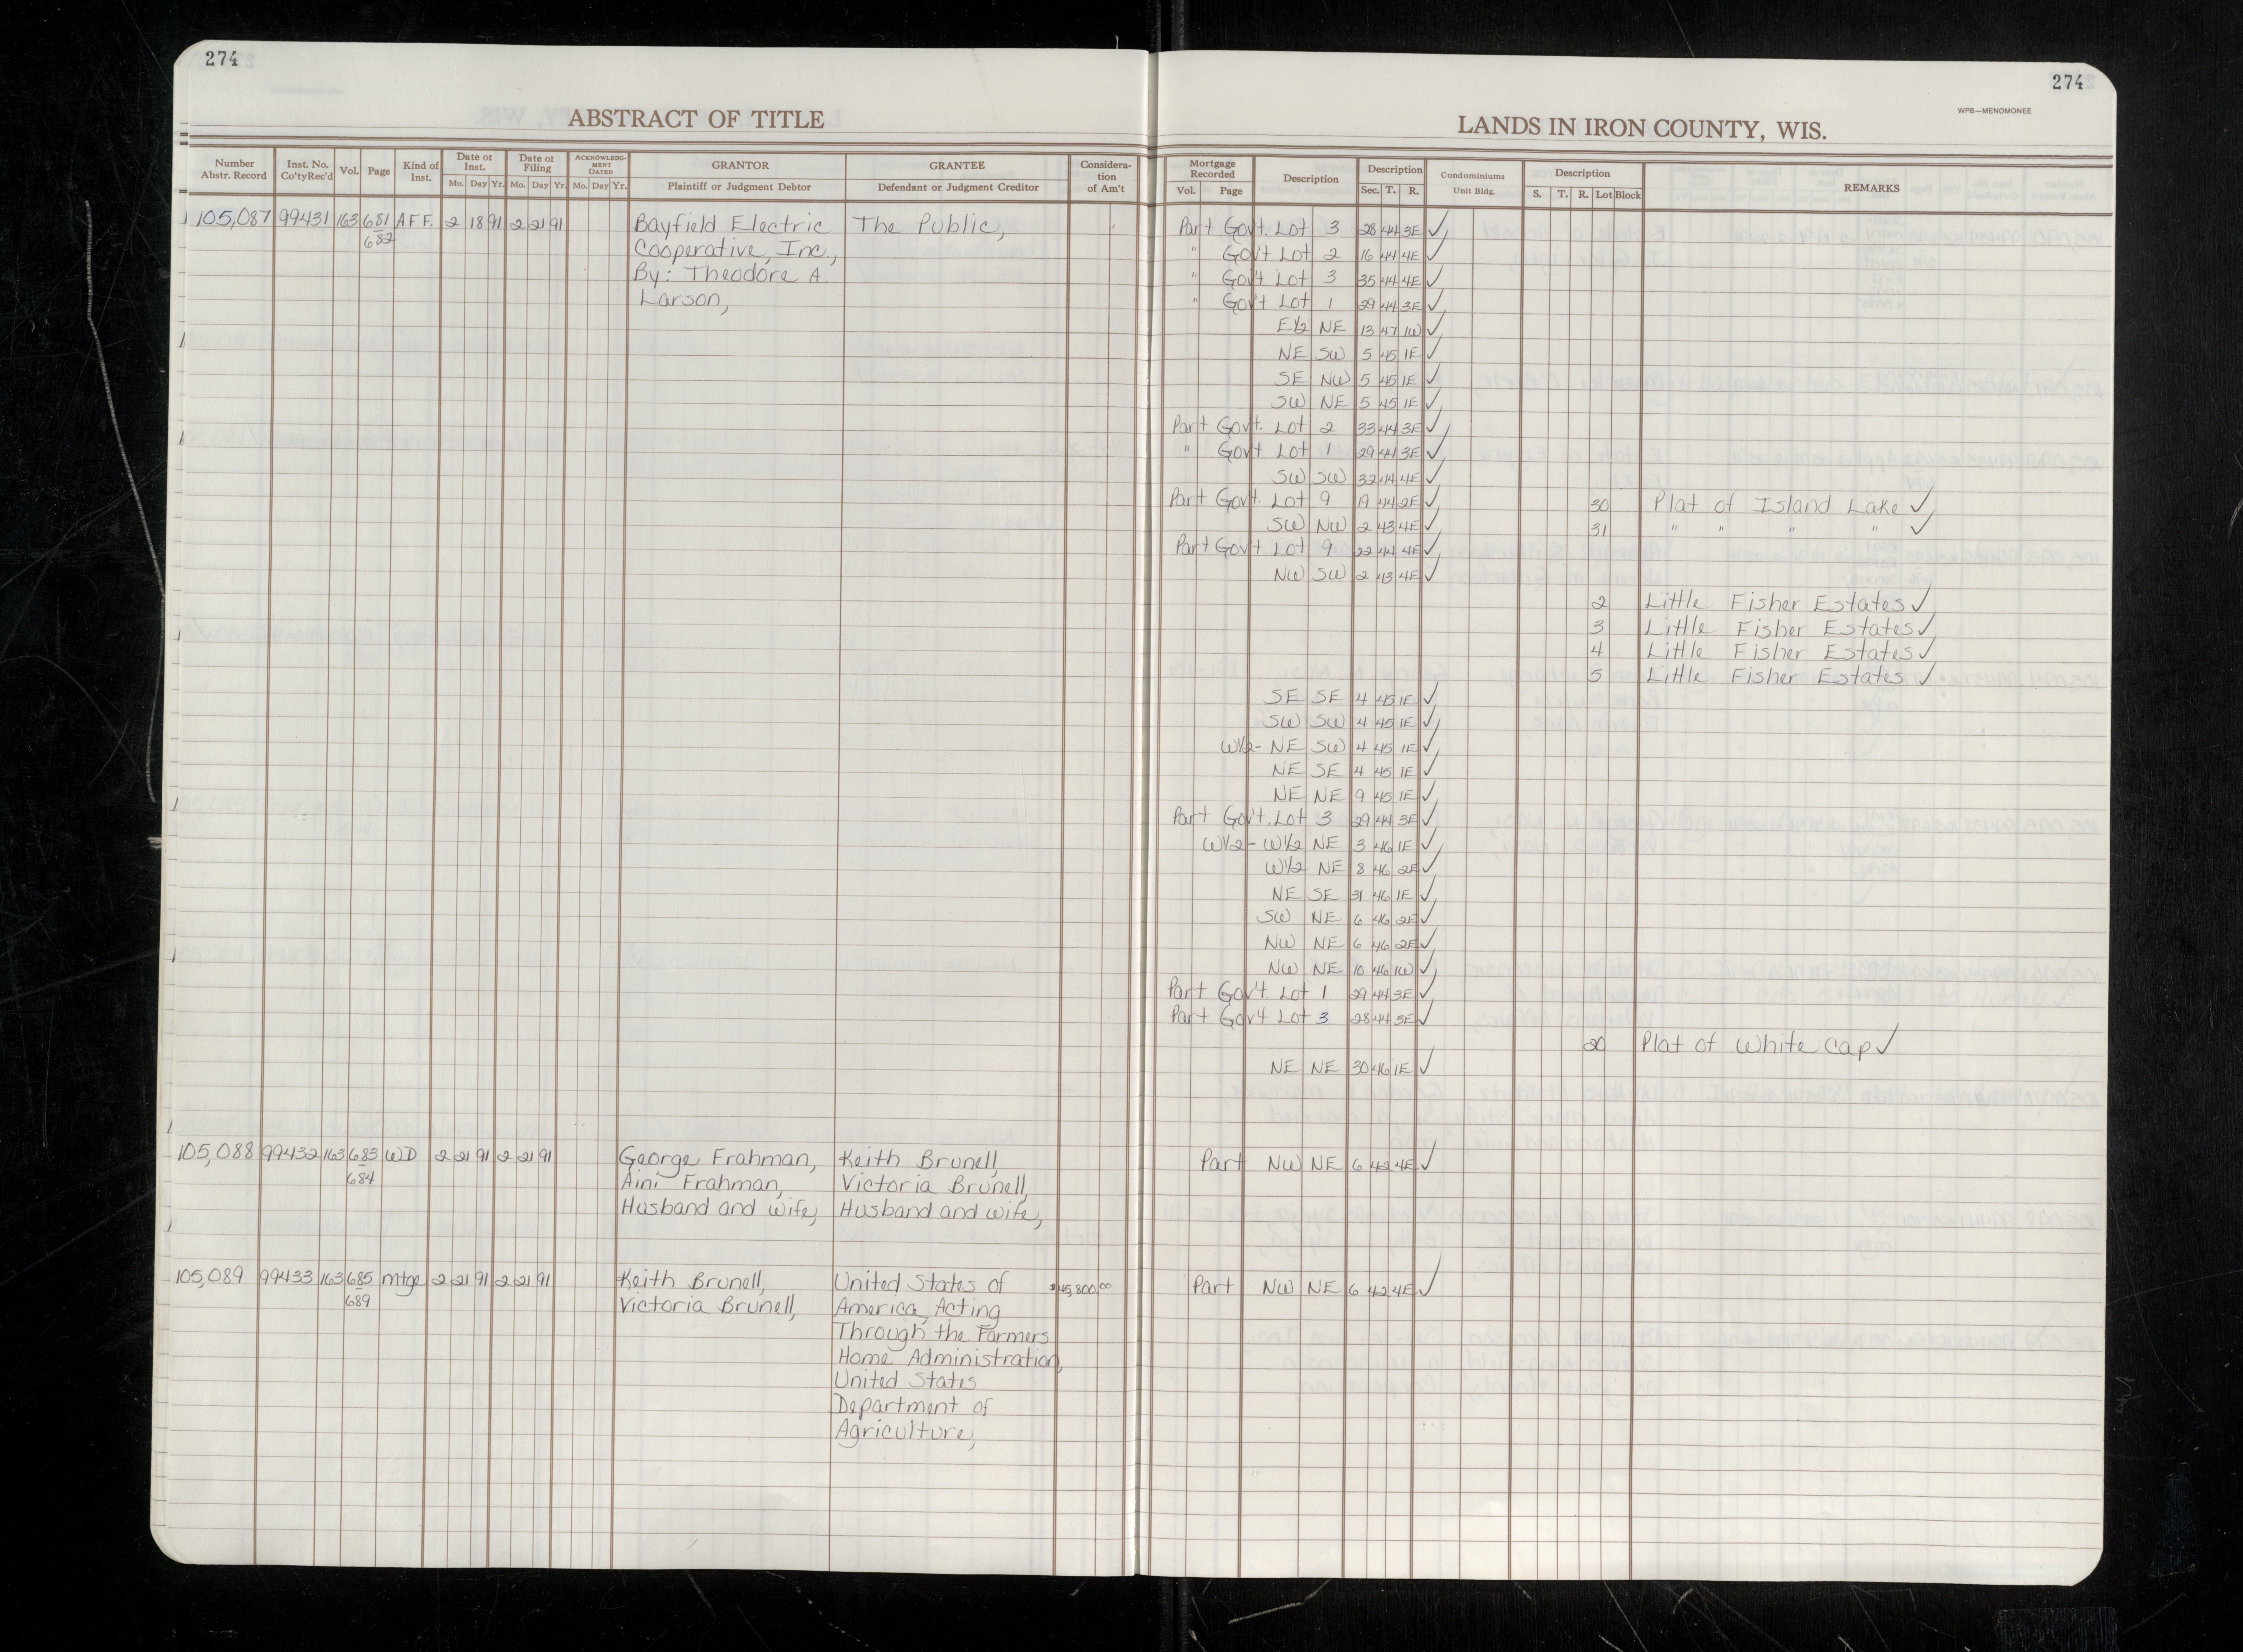 274
274
WPB—MENOMONEE
ABSTRACT OF TITLE
LANDS IN IRON COUNTY, WIS.
Number Abstr. Record | Inst. No. Co'ty Rec'd | Vol. | Page | Kind of Inst. | Date of Inst. Mo. Day Yr. | Date of Filing Mo. Day Yr. | ACKNOWLEDGMENT DATED Mo. Day Yr. | GRANTOR Plaintiff or Judgment Debtor | GRANTEE Defendant or Judgment Creditor | Considera-tion of Am't | Mortgage Recorded Vol. Page | Description | Description Sec. T. R. | Condominiums Unit Bldg. | Description S. T. R. Lot Block | REMARKS
105,087 99431 163 681 AFF. 2 18 91 2 21 91 Bayfield Electric The Public, Part Govt. Lot 3 28 44 3E ✓
682 Cooperative, Inc., " Gov't Lot 2 16 44 4E ✓
By: Theodore A. " Gov't Lot 3 35 44 4E ✓
Larson, " Gov't Lot 1 29 44 3E ✓
E½ NE 13 47 1W ✓
NE SW 5 45 1E ✓
SE NW 5 45 1E ✓
SW NE 5 45 1E ✓
Part Govt. Lot 2 33 44 3E ✓
" Gov't Lot 1 29 41 3E ✓
SW SW 32 44 4E ✓
Part Govt. Lot 9 19 44 2E ✓ 30 Plat of Island Lake ✓
SW NW 2 43 4E ✓ 31 " " " " ✓
Part Gov't Lot 9 22 44 4E ✓
NW SW 2 43 4E ✓
2 Little Fisher Estates ✓
3 Little Fisher Estates ✓
4 Little Fisher Estates ✓
5 Little Fisher Estates ✓
SE SE 4 45 1E ✓
SW SW 4 45 1E ✓
W½- NE SW 4 45 1E ✓
NE SE 4 45 1E ✓
NE NE 9 45 1E ✓
Part Gov't. Lot 3 29 44 3E ✓
W½- W½ NE 3 46 1E ✓
W½ NE 8 46 2E ✓
NE SE 31 46 1E ✓
SW NE 6 46 2E ✓
NW NE 6 46 2E ✓
NW NE 10 46 1W ✓
Part Gov't. Lot 1 29 44 3E ✓
Part Gov't Lot 3 28 44 3E ✓
20 Plat of White Cap ✓
NE NE 30 46 1E ✓
105,088 99432 163 683 WD 2 21 91 2 21 91 George Frahman, Keith Brunell, Part NW NE 6 42 4E ✓
684 Aini Frahman, Victoria Brunell,
Husband and wife, Husband and wife,
105,089 99433 163 685 mtge 2 21 91 2 21 91 Keith Brunell, United States of $45,800.00 Part NW NE 6 42 4E ✓
689 Victoria Brunell, America, Acting
Through the Farmers
Home Administration,
United States
Department of
Agriculture,